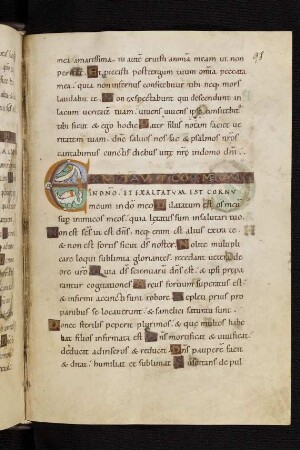 91
mea amarissima. tu autē eruisti animā meam ut non
periret. Et proiecisti post tergum tuum omīa peccata
mea. quia non infernus confitebitur tibi neq; mors
laudabit te. Non expectabunt qui descendunt in
lacum veritatē tuam. uiuens uiuens ipse confitebitur
tibi sicut & ego hodie. Pater filiis notam faciet ue
ritatem tuam. Dne saluos nos fac & psalmos nr̄os
cantabimus cunctis diebus uitę nrę in domo dn̄i.
IN DNO. ET EXALTATUM EST CORNU
meum in dō meo. Dilatatum est os meū
sup inimicos meos. quia lętata sum in salutari tuo.
Non est scs̄ ut est dn̄s. neq; enim est alius extra te.
& non est fortis sicut ds̄ noster. Nolite multipli
care loqui sublimia gloriantes. recedant uetera de
ore uro. Quia ds̄ scientiarū dn̄s est. & ipsi prepa
rantur cogitationes. Arcus fortium superatus est.
& infirmi accincti sunt robore. Repleti prius pro
panibus se locauerunt. & famelici saturati sunt.
Donec sterilis peperit plurimos. & que multos habe
bat filios infirmata est. Dn̄s mortificat & uiuificat
deducit ad inferos & reducit. Dn̄s pauperē facit
& ditat. humiliat et subleuat. Suscitans de pul